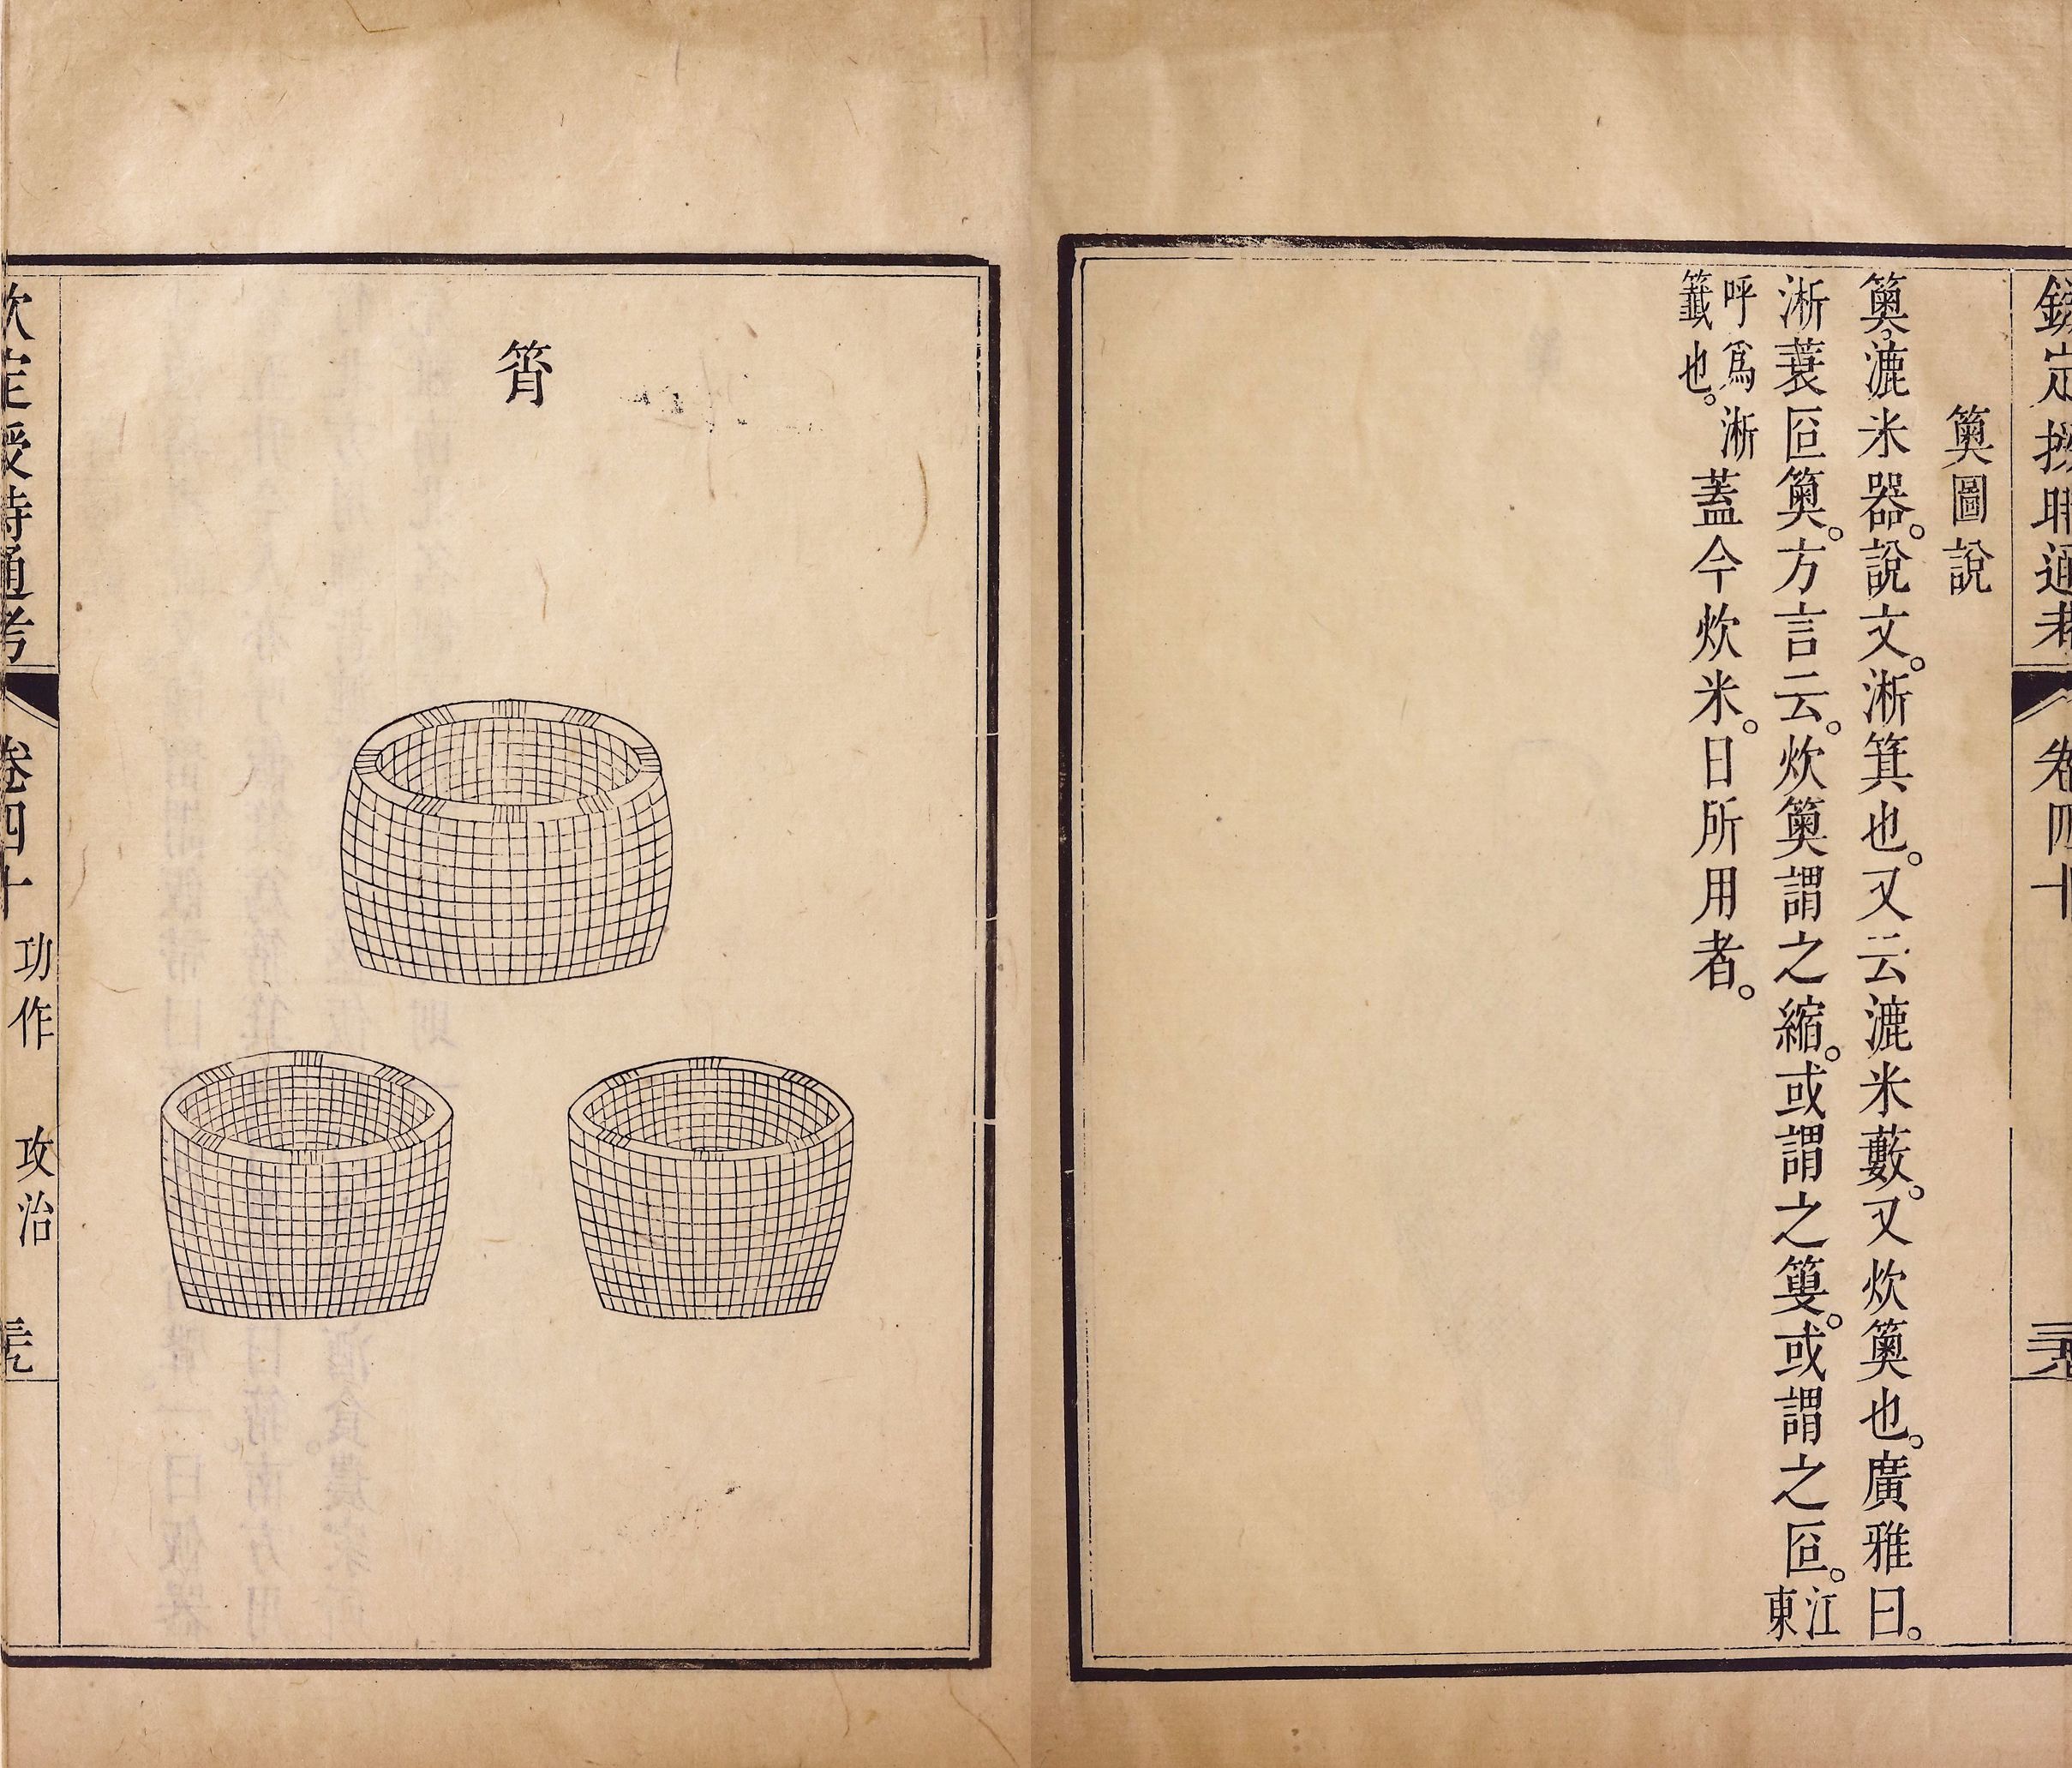 欽定授時通考 卷四十
䉛圖說
䉛。漉米器。說文。淅箕也。又云漉米藪。又炊䉛也。廣雅曰。
淅䉛。方言云。炊䉛謂之縮。或謂之篗。或謂之。江東
呼爲淅籤也。蓋今炊米。日所用者。
筲
欽定授時通考 卷四十 功作 攻治